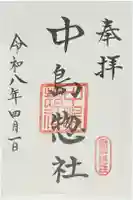 奉拝
中島惣社
令和八年四月一日